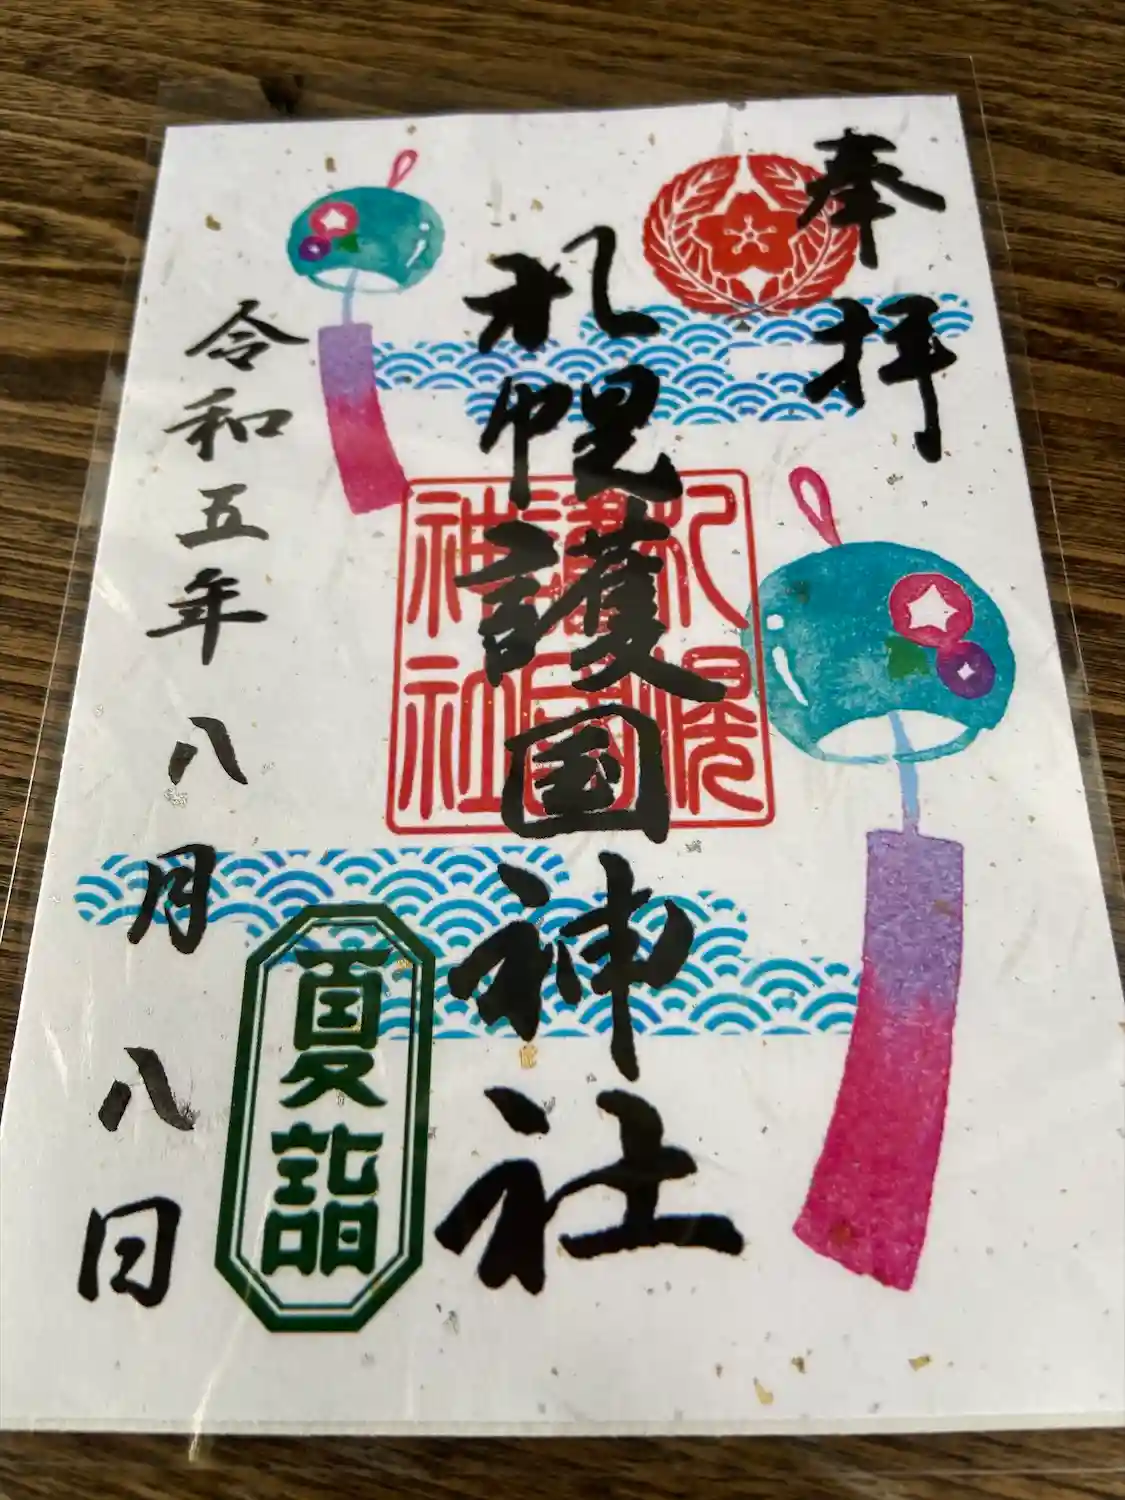 奉拝
札幌護国神社
札幌
護国
神社
令和五年八月八日
夏詣